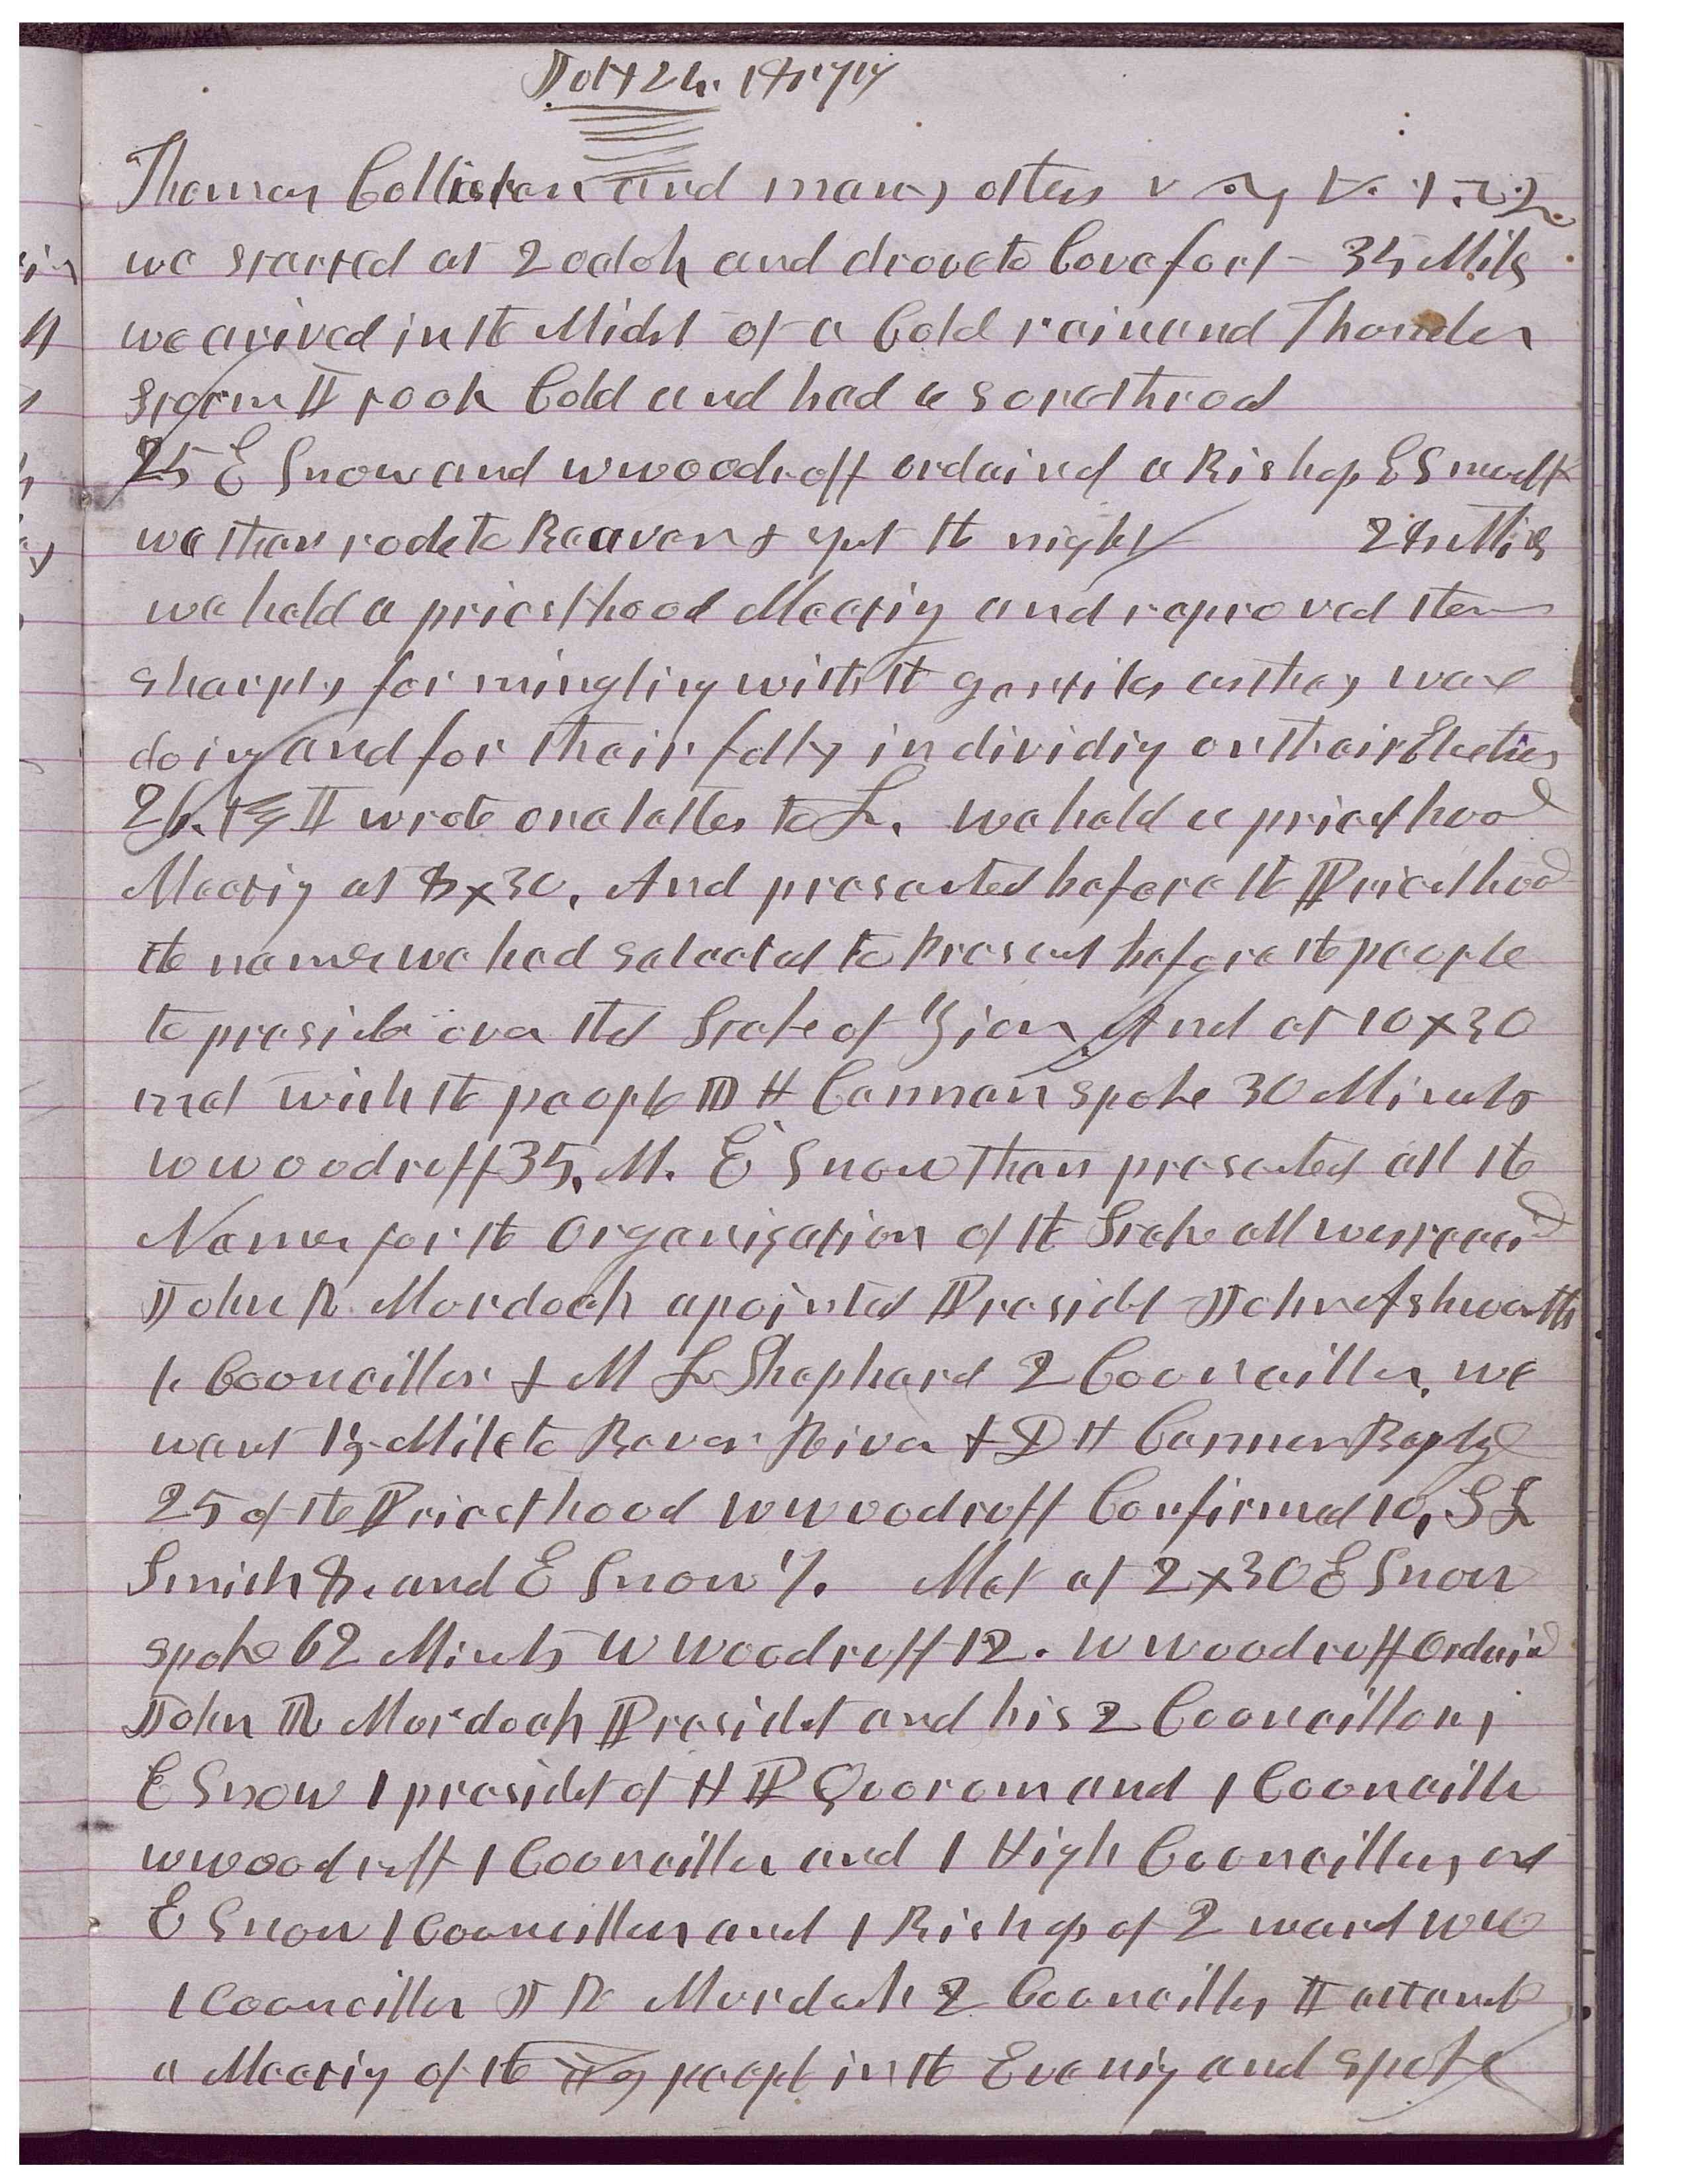 July 24. 1877
Thomas Collister and many others
we started at 2 oclok and drove to Covefort - 35 Mils
we arived in the Midst of a Cold rain and Thunder
storm I took Cold and had a sore throat
25 E Snow and W Woodruff ordained a Bishop &
we then rode to Beaver & spt the night 28 Mils
we held a priesthood Meetig and reproved them
sharply for mingling with the gentiles as they ware
doing and for their folly in dividig on their Elections
26. I wrote one letter to L. we held a priesthood
Meetig at 8x30, And presented before the Priesthood
the names we had selected to Present before the people
to preside over this Stake of Zion And at 10x30
met with the people D H Cannan spoke 30 Minuts
W Woodruff 35, M. E Snow then presented all the
Names for the Organization of the Stake all were
John R Murdock apointed Presidet John Ashworth
1. Councillor & M L Shephard 2 Councillor, we
went 1½ Mile to Bever River & D H Cannon Baptze
25 of the Priesthood W Woodruff Confirmed 10, S L
Smith 8. and E Snow 7. Met at 2x30 E Snow
spoke 62 Minuts W Woodruff 12. W Woodruff Ordaind
John R Murdock Presidet and his 2 Councillors,
E Snow 1 presidet of H P Quorum and 1 Councillr
W Woodruff 1 Councillor and 1 High Councillors, and
E Snow 1 Councillor and 1 Bishop of 2 ward WW
1 Councillor J R Murdock 2 Councillors I attend
a Meetig of the peopl in the Evenig and spoke